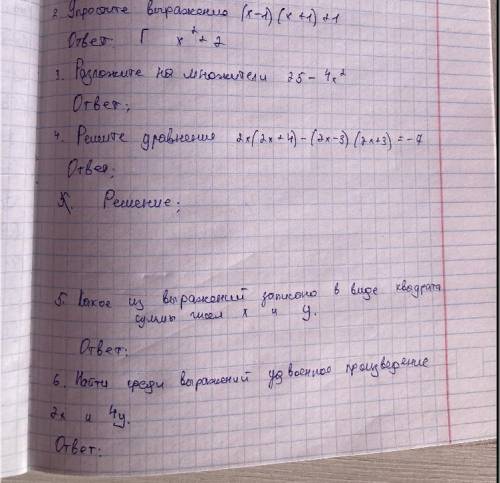 2. Упростите выражение (x-1)(x+1)+1
Ответ: Г x² + 2
3. Разложите на множители 25 - 4x²
Ответ:
4. Решите уравнения 2x(2x+4) - (2x-3)(2x+3) = -7
Ответ:
Решение:
5. Какое из выражений записано в виде квадрата
суммы чисел x и y.
Ответ:
6. Найти среди выражений удвоенное произведение
2x и 4y.
Ответ: